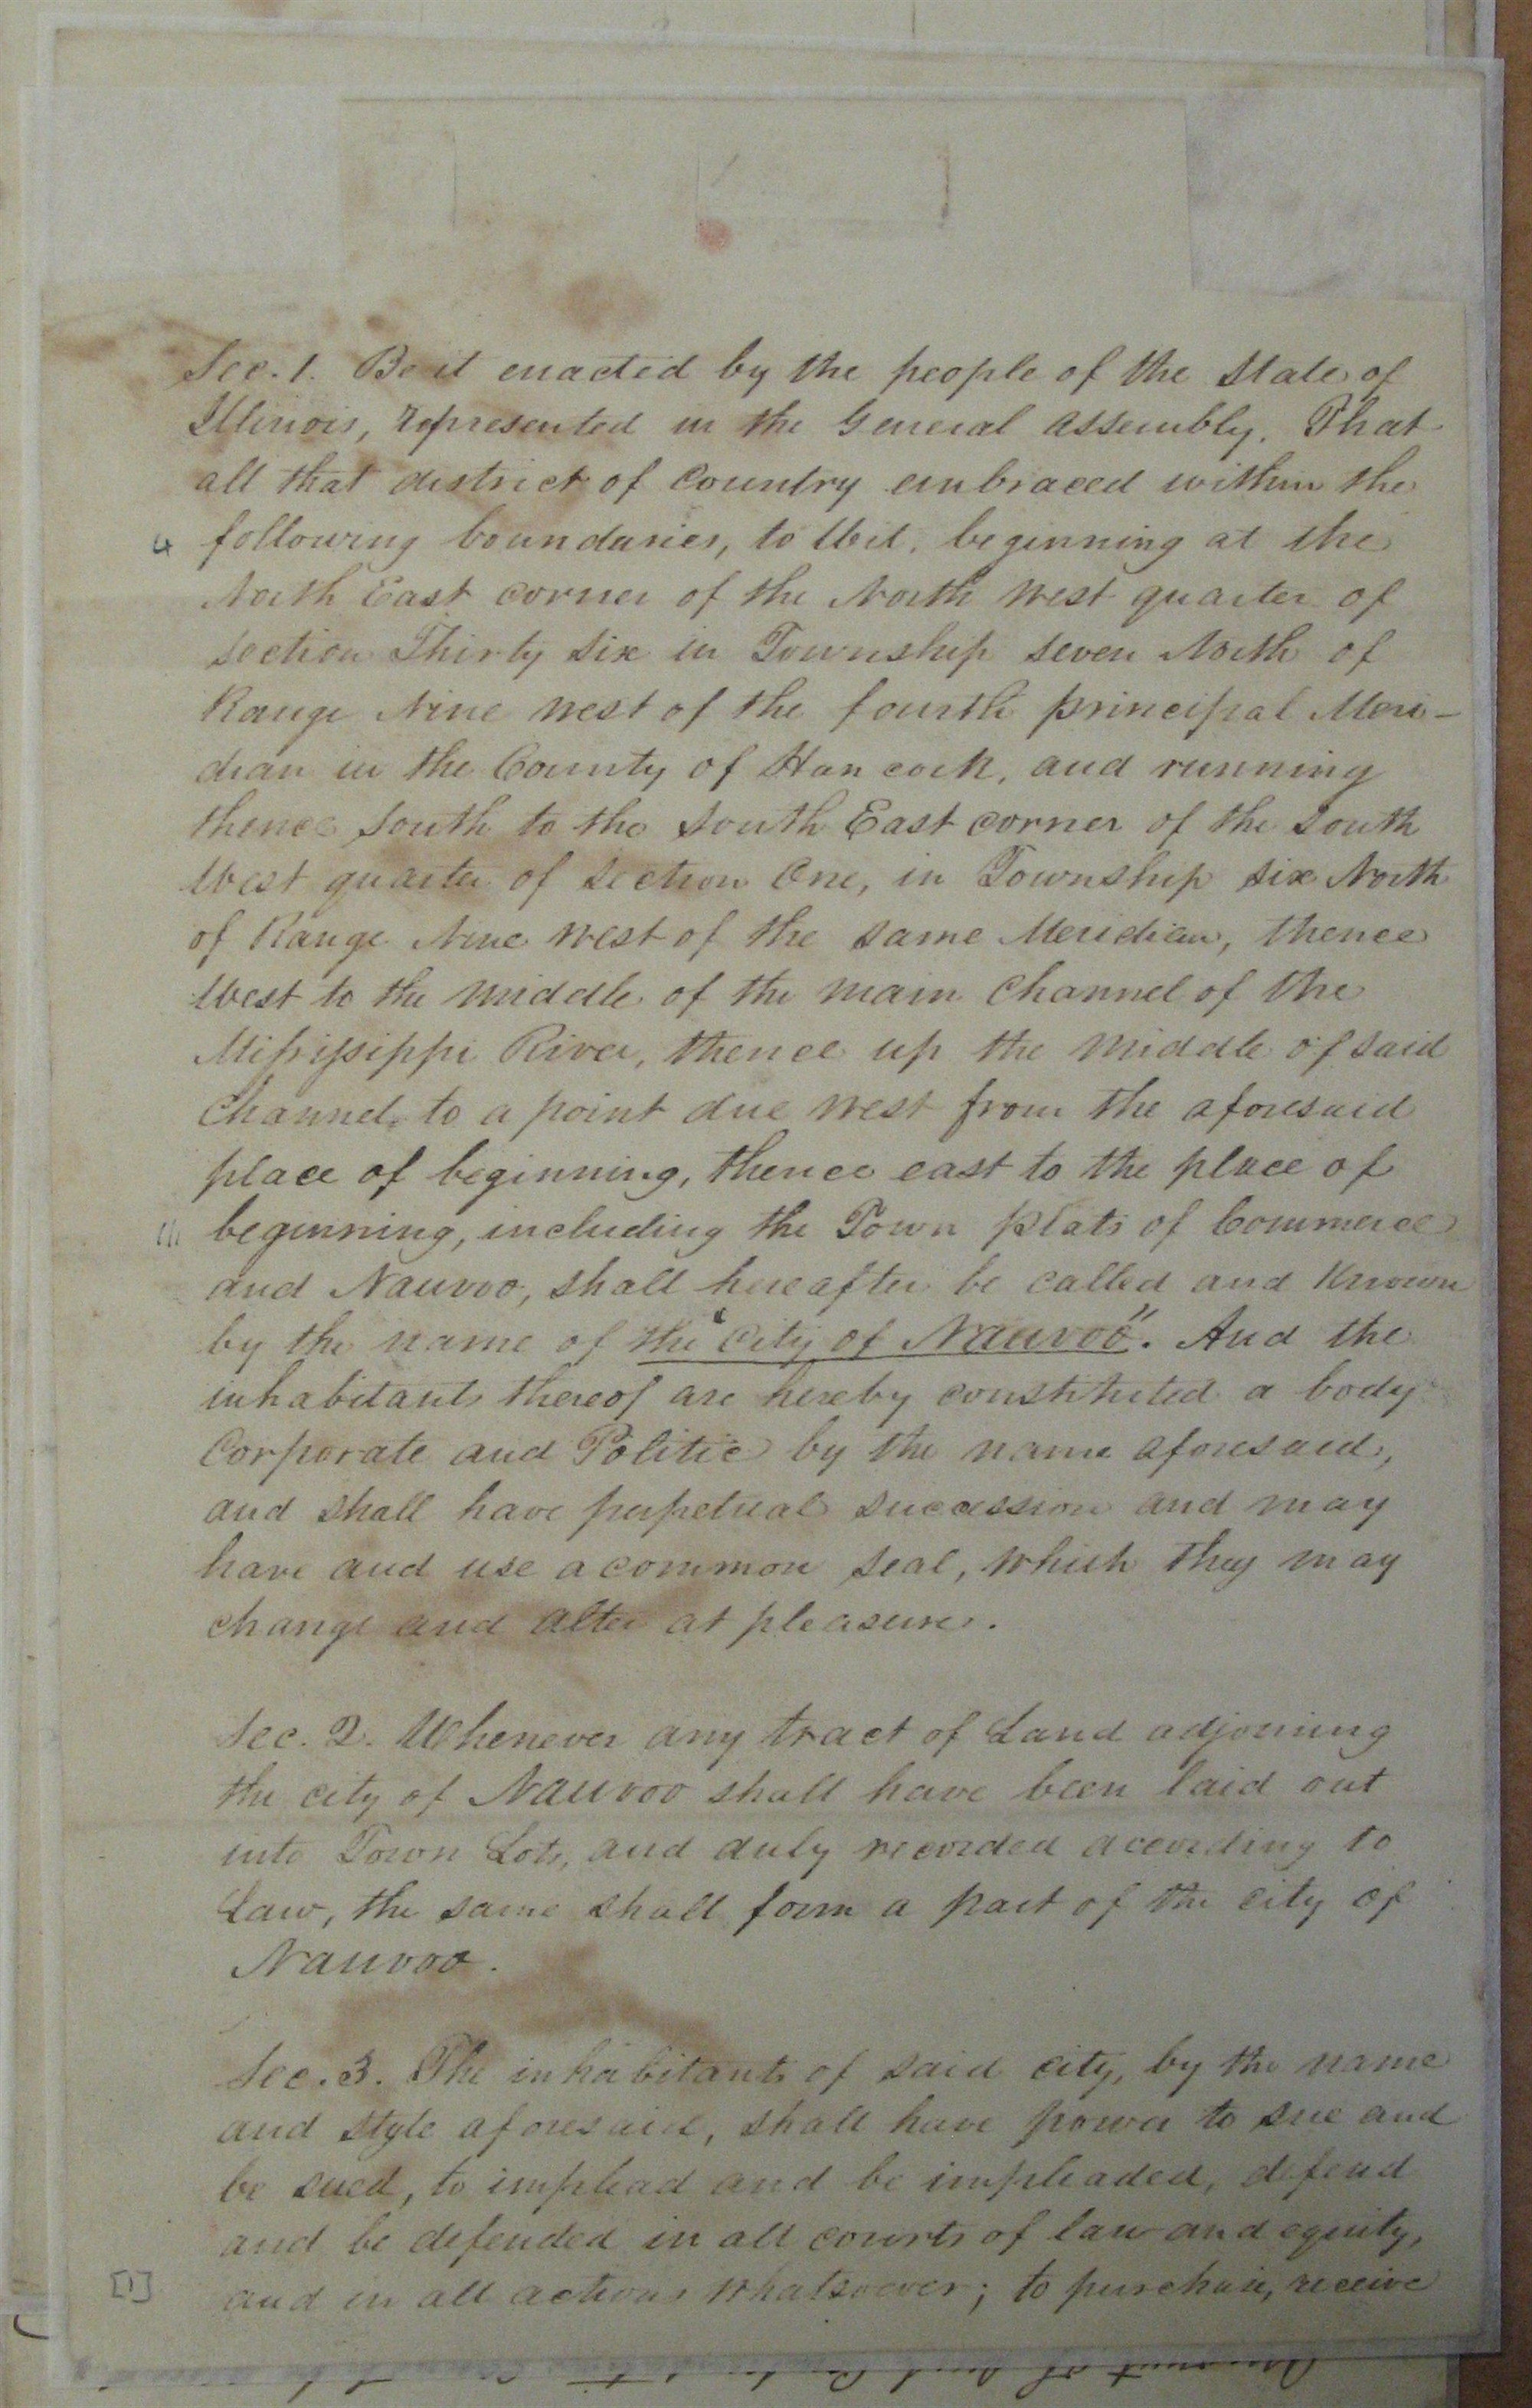 Sec. 1. Be it enacted by the people of the State of
Illinois, represented in the General Assembly. That
all that district of Country embraced within the
4 following boundaries, to Wit, beginning at the
North East corner of the North West quarter of
section Thirty Six in Township seven North of
Range Nine west of the fourth principal Meri-
dian in the County of Hancock, and running
thence South to the South East corner of the South
West quarter of Section One, in Township six North
of Range Nine west of the same Meridian, thence
West to the middle of the main Channel of the
Mississippi River, thence up the middle of said
Channel to a point due west from the aforesaid
place of beginning, thence east to the place of
beginning, including the Town plats of Commerce
and Nauvoo, shall hereafter be called and Known
by the name of the "City of Nauvoo". And the
inhabitants thereof are hereby constituted a body
Corporate and Politic by the name aforesaid,
and shall have perpetual succession and may
have and use a common Seal, which they may
change and alter at pleasure.
Sec. 2. Whenever any tract of Land adjoining
the city of Nauvoo shall have been laid out
into Town Lots, and duly recorded according to
Law, the same shall form a part of the city of
Nauvoo.
Sec. 3. The inhabitants of said city, by the name
and style aforesaid, shall have power to sue and
be sued, to implead and be impleaded, defend
and be defended in all courts of law and equity,
[1] and in all actions whatsoever; to purchase, receive